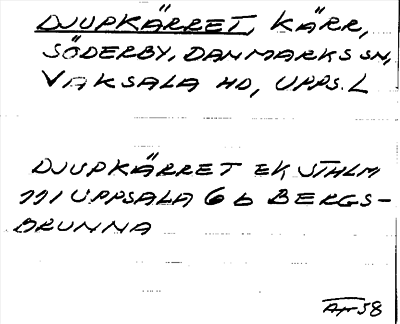 DJUPKÄRRET, KÄRR,
SÖDERBY, DANMARKS SN,
VAKSALA HD, UPPS. L
DJUPKÄRRET EK STHLM
111 UPPSALA 6 b BERGS-
BRUNNA